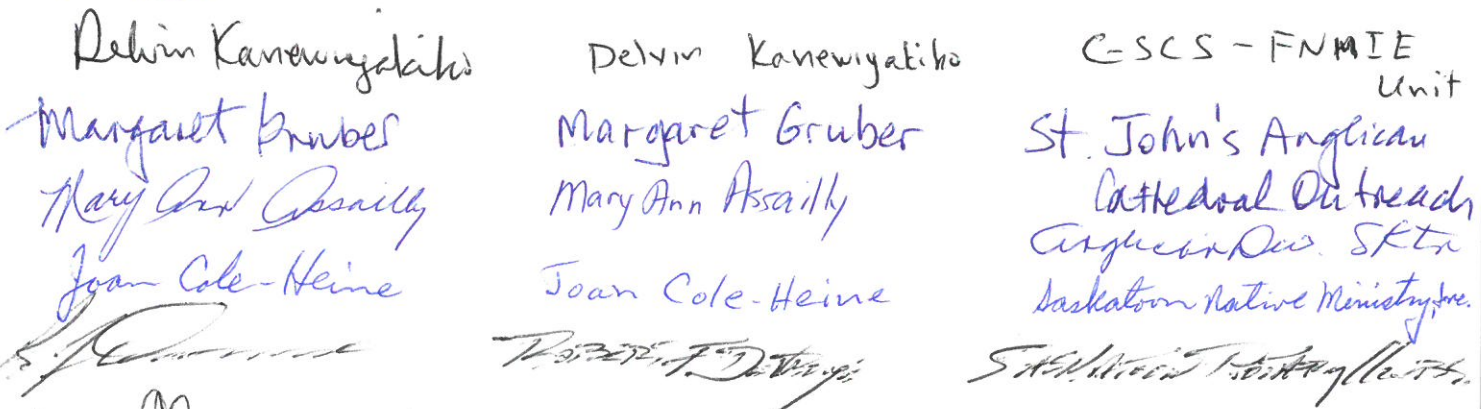 Delvin Kanewiyakiho Delvin Kanewiyakiho CSCS - FNMIE
Unit
Margaret Gruber Margaret Gruber St. John's Anglican
Cathedral Outreach
Mary Ann Assailly Mary Ann Assailly Anglican Dio. SKTN
Joan Cole-Heine Joan Cole-Heine Saskatoon Native Ministry, Inc.
Saskatoon